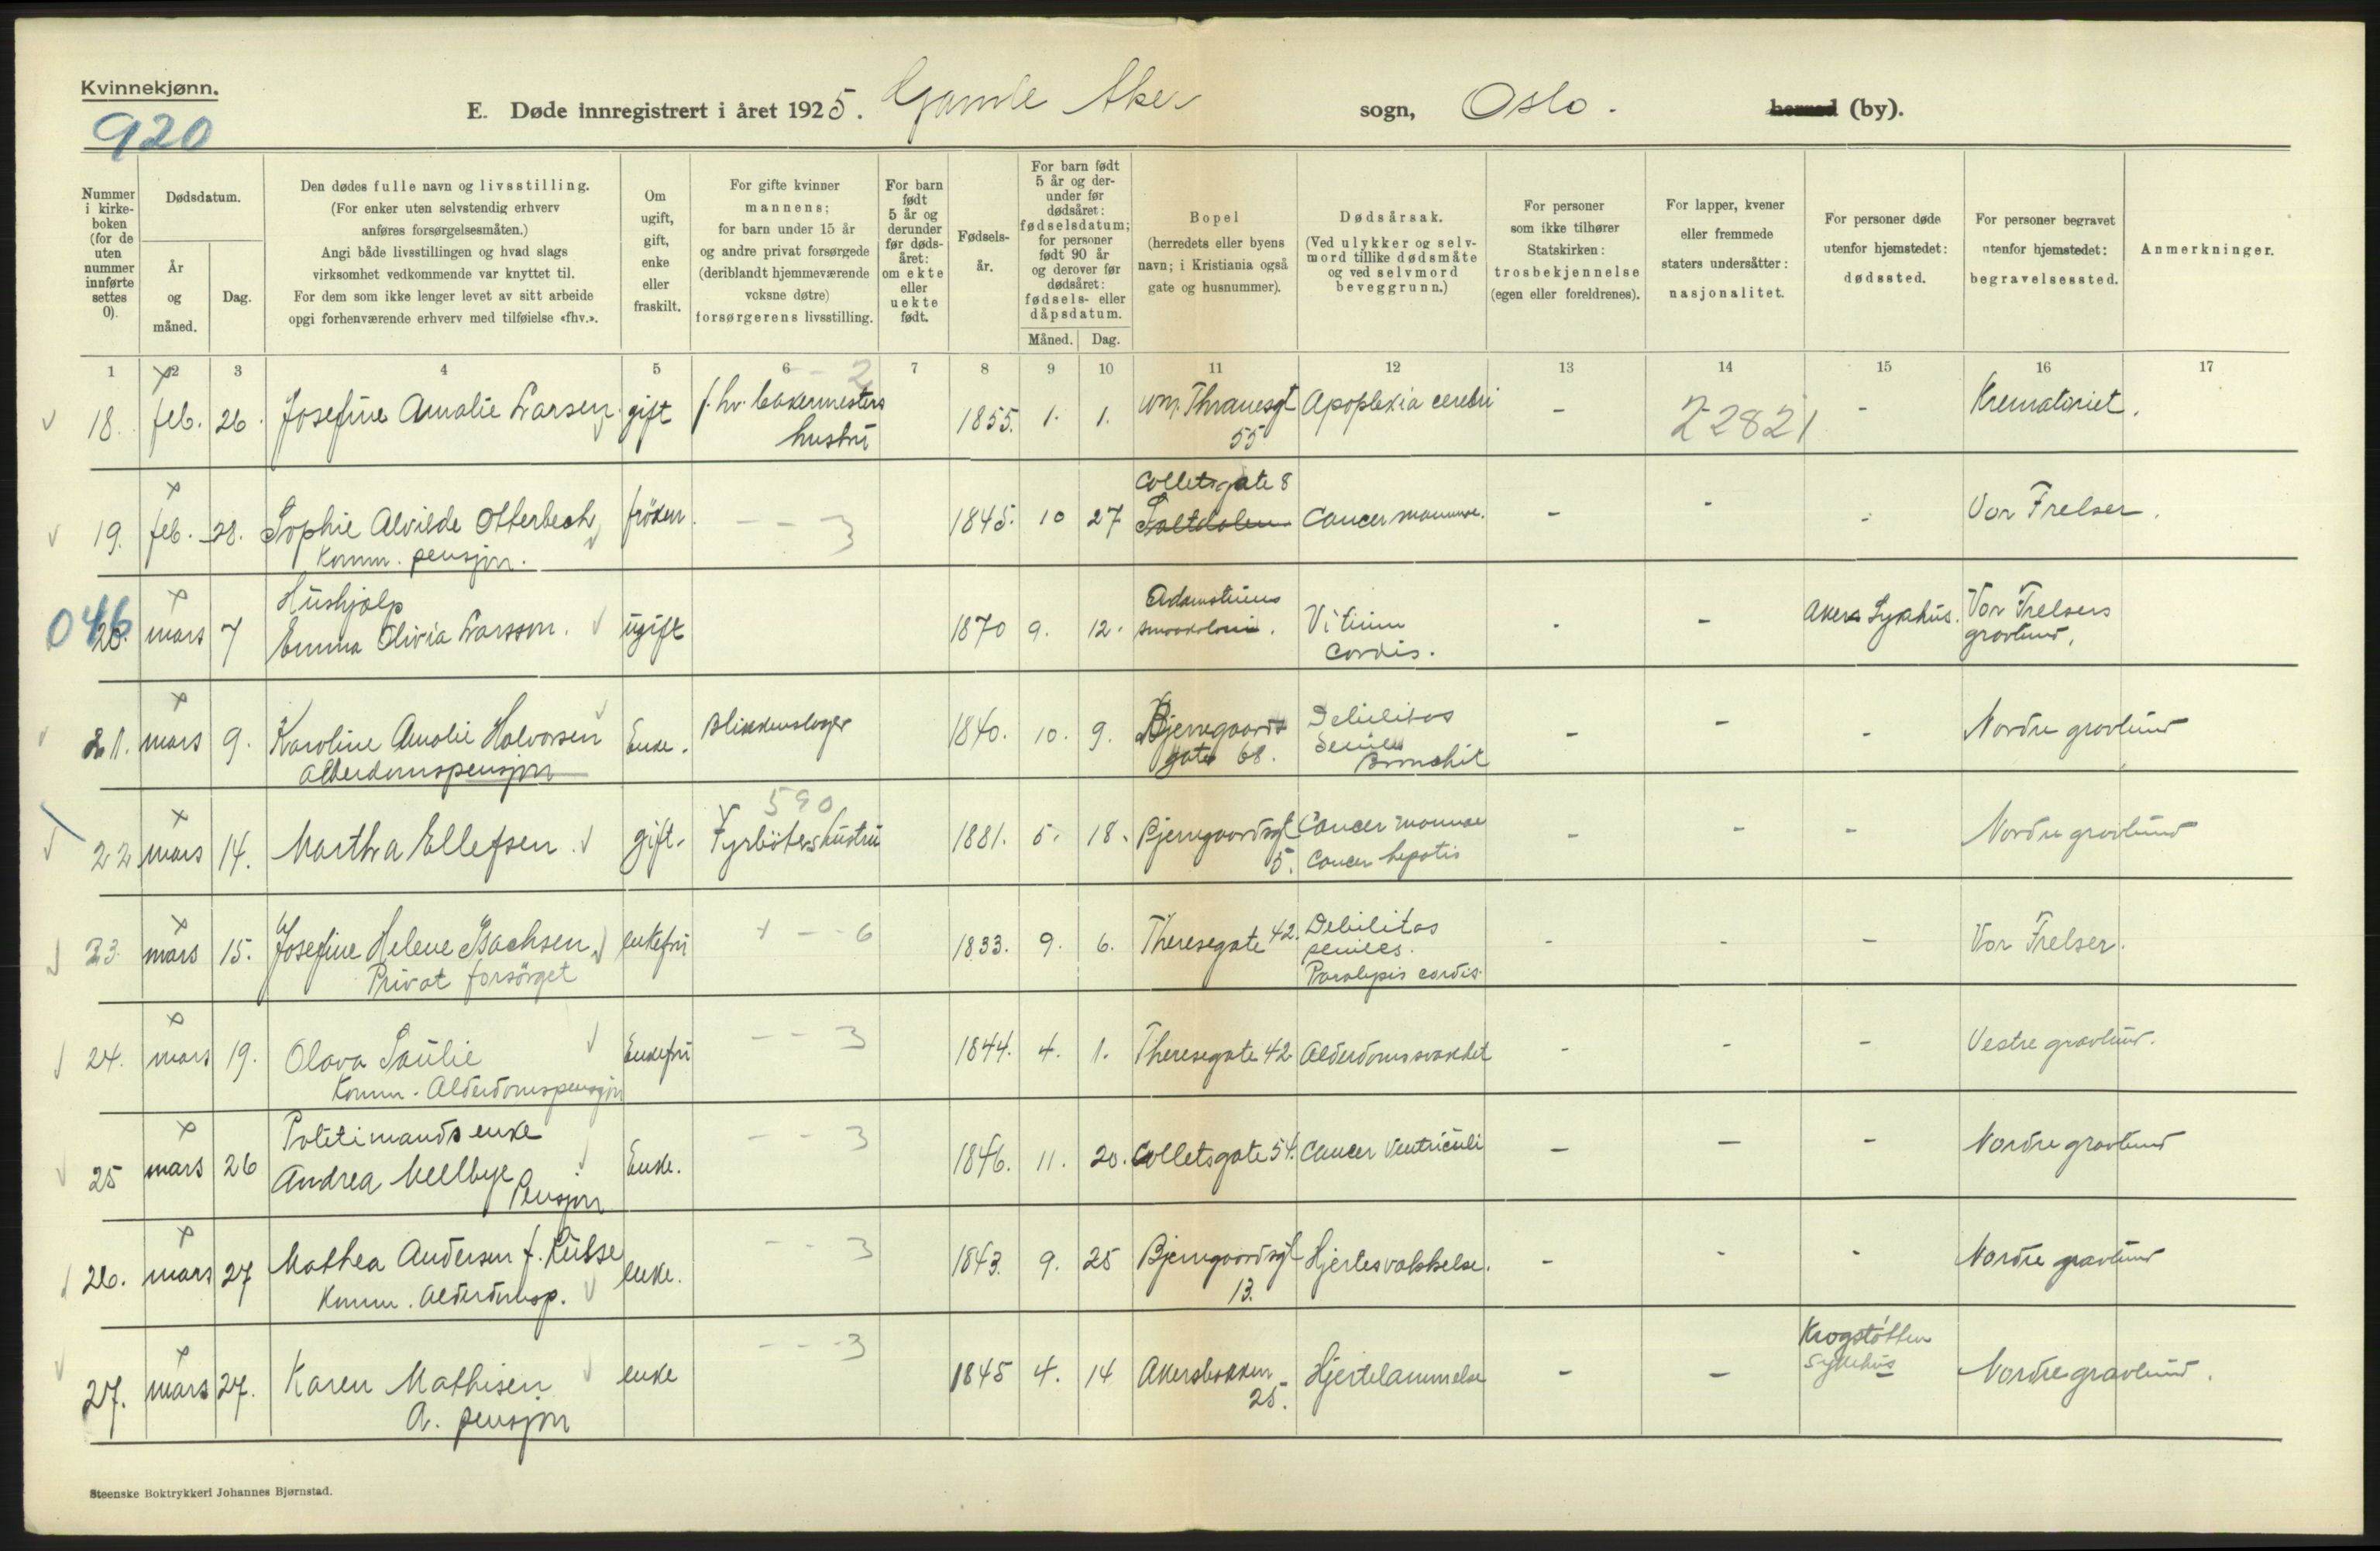 Kvinnekjønn.
920
E. Døde innregistrert i året 1925. Gamle Aker sogn, Oslo. herred (by).
Nummer i kirke-boken (for de uten nummer innførte settes 0).
Dødsdatum.
År og måned.
Dag.
Den dødes fulle navn og livsstilling.
(For enker uten selvstendig erhverv
anføres forsørgelsesmåten.)
Angi både livsstillingen og hvad slags
virksomhet vedkommende var knyttet til.
For dem som ikke lenger levet av sitt arbeide
opgi forhenværende erhverv med tilføielse «fhv.».
Om ugift, gift, enke eller fraskilt.
For gifte kvinner
mannens;
for barn under 15 år
og andre privat forsørgede
(deriblandt hjemmeværende
voksne døtre)
forsørgerens livsstilling.
For barn født 5 år og derunder før døds-året: om ekte eller uekte født.
Fødsels-år.
For barn født
5 år og der-
under før
dødsåret:
fødselsdatum;
for personer
født 90 år
og derover før
dødsåret:
fødsels- eller
dåpsdatum.
Måned. Dag.
Bopel
(herredets eller byens
navn; i Kristiania også
gate og husnummer).
Dødsårsak.
(Ved ulykker og selv-
mord tillike dødsmåte
og ved selvmord
beveggrunn.)
For personer
som ikke tilhører
Statskirken:
trosbekjennelse
(egen eller foreldrenes).
For lapper, kvener
eller fremmede
staters undersåtter:
nasjonalitet.
For personer døde
utenfor hjemstedet:
dødssted.
For personer begravet
utenfor hjemstedet:
begravelsessted.
Anmerkninger.
1 2 3 4 5 6 7 8 9 10 11 12 13 14 15 16 17
- - 2
18. feb. 26. Josefine Amalie Larsen. gift f.hv. bakermesters 1855. 1. 1. Wm. Thranesgt Apoplexia cerebri - 22821 - Krematoriet.
hustru 55
Colletsgate 8
19. feb. 28. Sophie Alvilde Otterbech frøken. - - 3 1845. 10 27 Cancer mammae. - - - Vor Frelser.
Komm. pensjon.
046
Hushjælp
20. mars 7 Emma Olivia Larsson. ugift 1870 9. 12. Vitium cordis. - - Akers Sykehus. Vor Frelsers gravlund.
21. mars 9. Karoline Amalie Halvorsen Enke. Blikkenslager 1840. 10. 9. Bjerregaards gate 68. Debilitas senilis Bronchit - - - Nordre gravlund
Alderdomspensjon
590
22 mars 14. Martha Ellefsen. gift. Fyrbøters hustru 1881. 5. 18. Bjerregaardsgt 5. Cancer mammae Cancer hepatis - - - Nordre gravlund
23. mars 15. Josefine Helene Isachsen enkefru + - - 6 1833. 9. 6. Theresegate 42. Debilitas seniles. Paralysis cordis. - - - Vor Frelser.
Privat forsørget
24. mars 19. Olava Paulie Enkefru - - 3 1844. 4. 1. Theresegate 42 Alderdomssvakhet - - - Vestre gravlund.
Komm. Alderdomspensjon
Politimands enke
25 mars 26 Andrea Mellbye Enke. - - 3 1846. 11. 20. Colletsgate 54. Cancer Ventriculi - - - Nordre gravlund
Pensjon
26. mars 27 Mathea Andersen f. enke. - - 3 1843. 9. 25 Bjerregaardsgt 13. Hjertesvakkelse. - - - Nordre gravlund
Komm. Alderdomsp.
27. mars 27. Karen Mathisen enke - - - 3 1845 4. 14 Akersbakken 25. Hjertelammelse - - Krogstøtten Sykehus Nordre gravlund.
A. pensjon
Steenske Boktrykkeri Johannes Bjørnstad.